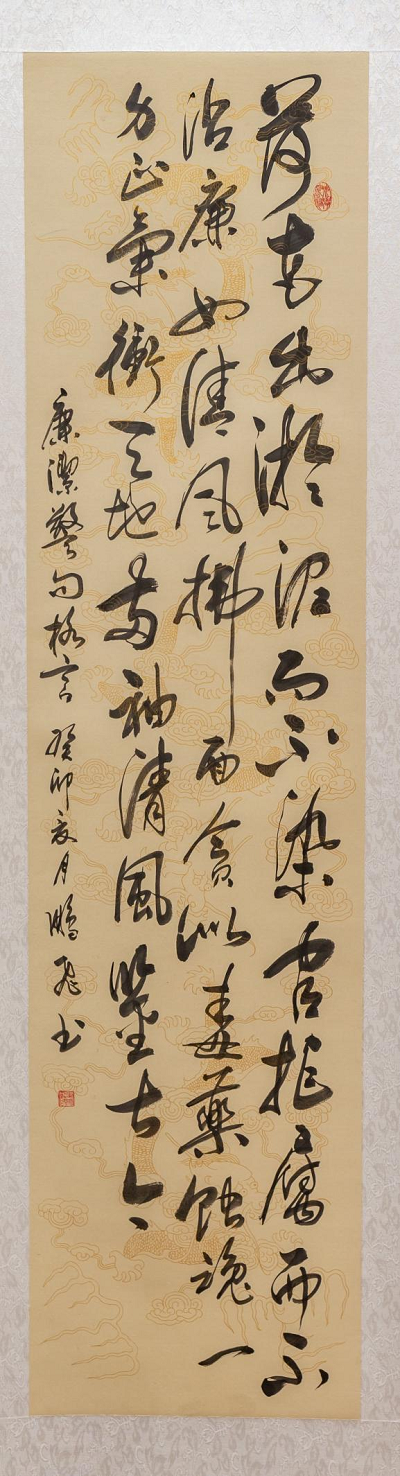 荷花出淤泥而不染官拒腐而不
沾廉如清风拂面贪似毒藥蚀魂一
身正氣衝天地両袖清風鑒古今
廉潔警句格言 癸卯夏月鵬飛书